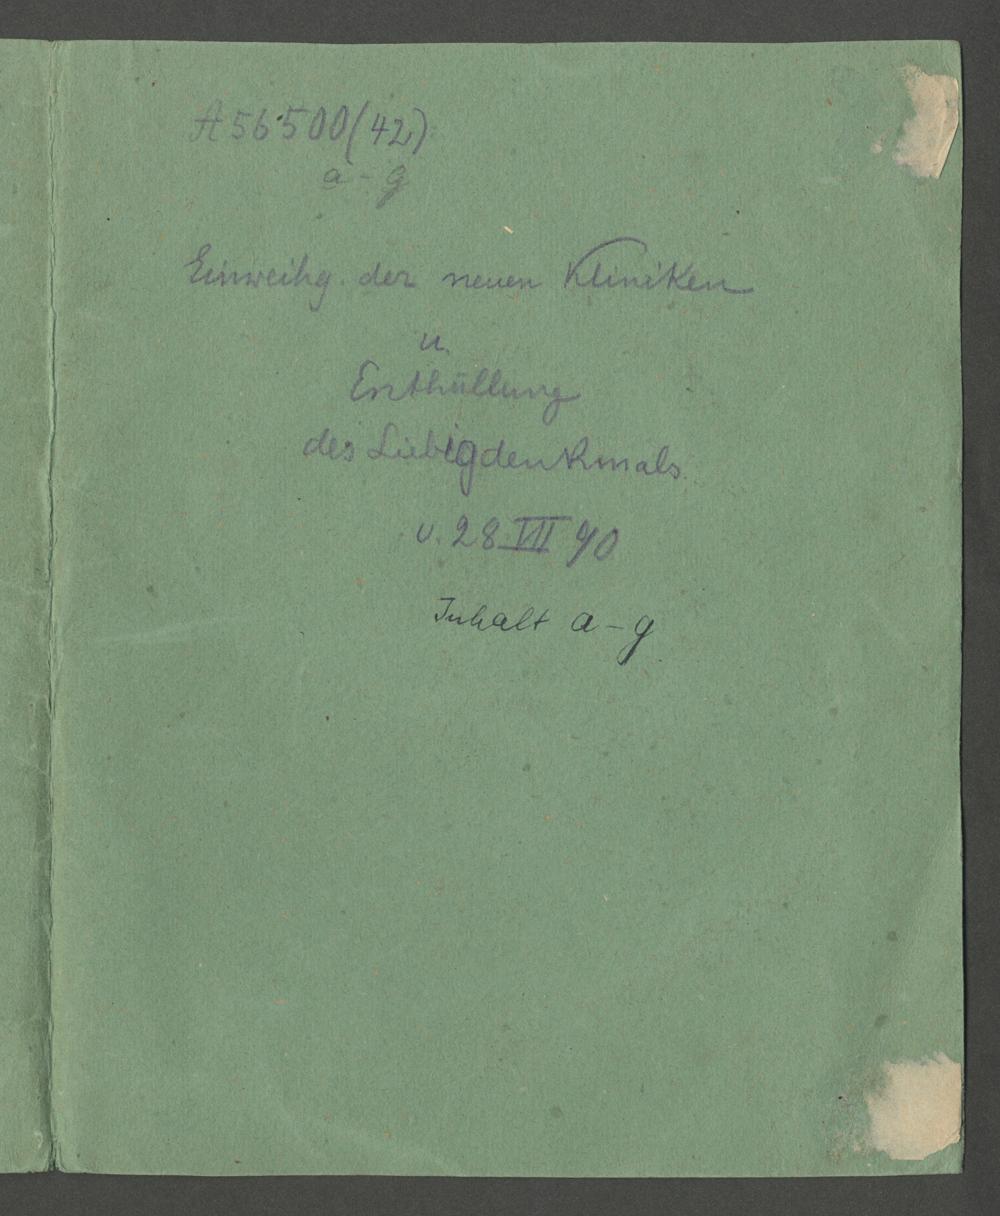 A 56500 (42)
a - g
Einweihg. der neuen Kliniken
u.
Enthüllung
des Liebigdenkmals.
v. 28 VII 90
Inhalt a - g